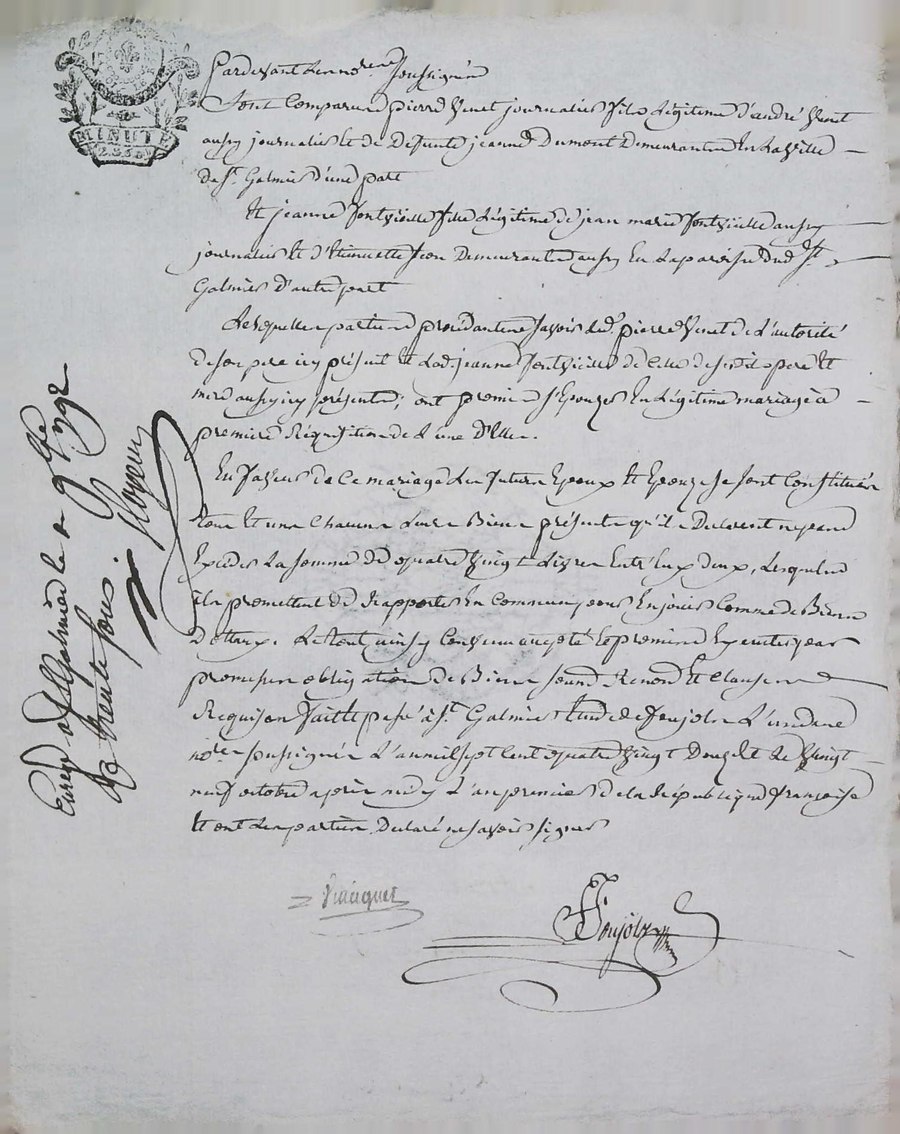 MINUTE
Pardevant les no.res soussignés
Sont comparus pierre Venet journalier fils légitime d'andré Venet
aussy journalier et de Defunte jeanne Dumont Demeurants En la ville
de St. Galmier d'une part
Et jeanne fontvieille fille légitime de jean marie fontvieille aussy
journalier et d'Etiennette Demeurante aussy En la paroisse Dud. St
Galmier d'autre part
Lesquelles parties procédantes savoir led. pierre Venet de l'autorité
de son pere icy présent et lad. jeanne fontvieille de celle de sesd. pere et
mere aussy icy présents, ont promis s'Epouzer En légitime mariage à
premiere Réquisition de l'une d'Elles.
En faveur de ce mariage les futurs Epoux et Epouze se sont Constitués
tous et uns Chacuns leurs Biens présents qu'ils Declarent ne pas
Excéder la somme de quatre vingt livres Entr'Eux deux, lesquels
ils promettent de Rapporter En Commun pour En jouir Comme de Biens
Le tout ainsy Convenu promis Exécuter par
promesse obligation de Biens Renond. Et Clauses
Requises fait et passé à St. Galmier Etude de foujols L'un des
no.res soussignés L'an mil sept cent quatre vingt Douze et le vingt
neuf octobre après midy L'an premier de la République françoise
Et ont les parties Declaré ne savoir signer
foujols
Enreg. à St Galmier le 9bre 1792
Rç trente sous.